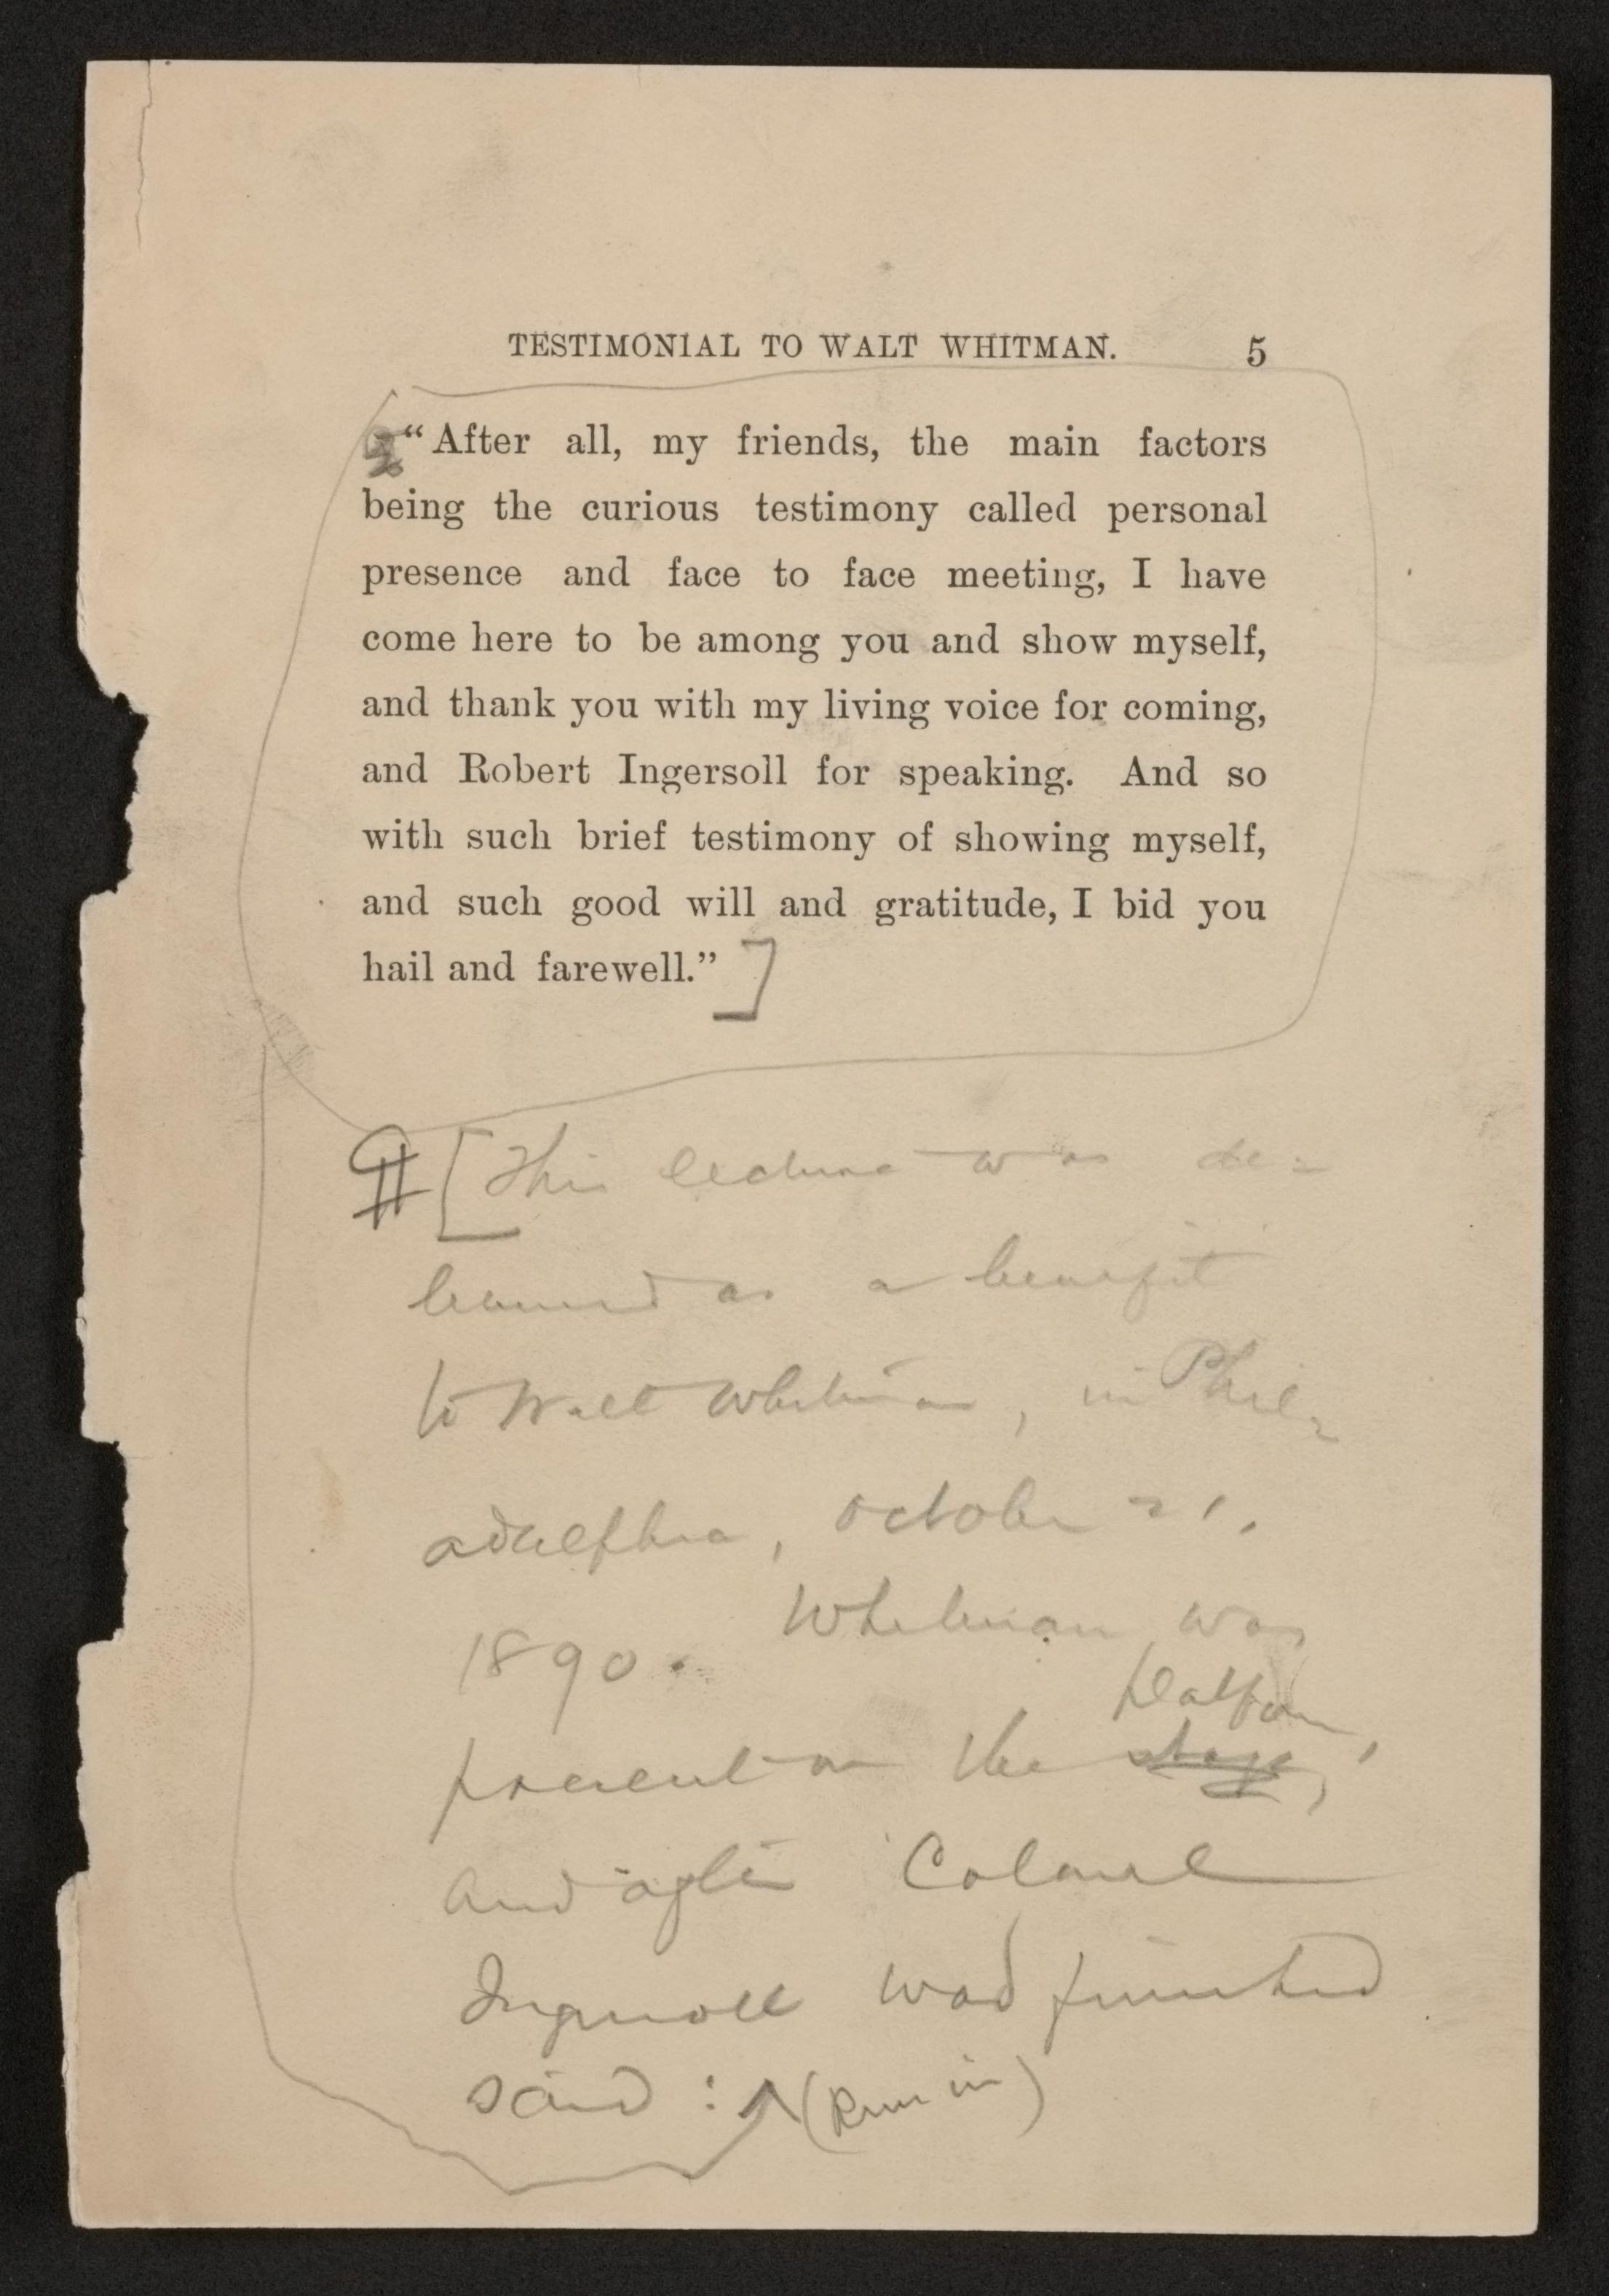 TESTIMONIAL TO WALT WHITMAN. 5
“After all, my friends, the main factors
being the curious testimony called personal
presence and face to face meeting, I have
come here to be among you and show myself,
and thank you with my living voice for coming,
and Robert Ingersoll for speaking. And so
with such brief testimony of showing myself,
and such good will and gratitude, I bid you
hail and farewell.” ]
¶ [This lecture was de-
livered as a benefit
to Walt Whitman, in Phil-
adelphia, October 21,
1890. Whitman was
platform,
present on the stage,
and after Colonel
Ingersoll had finished
said: (Run in)